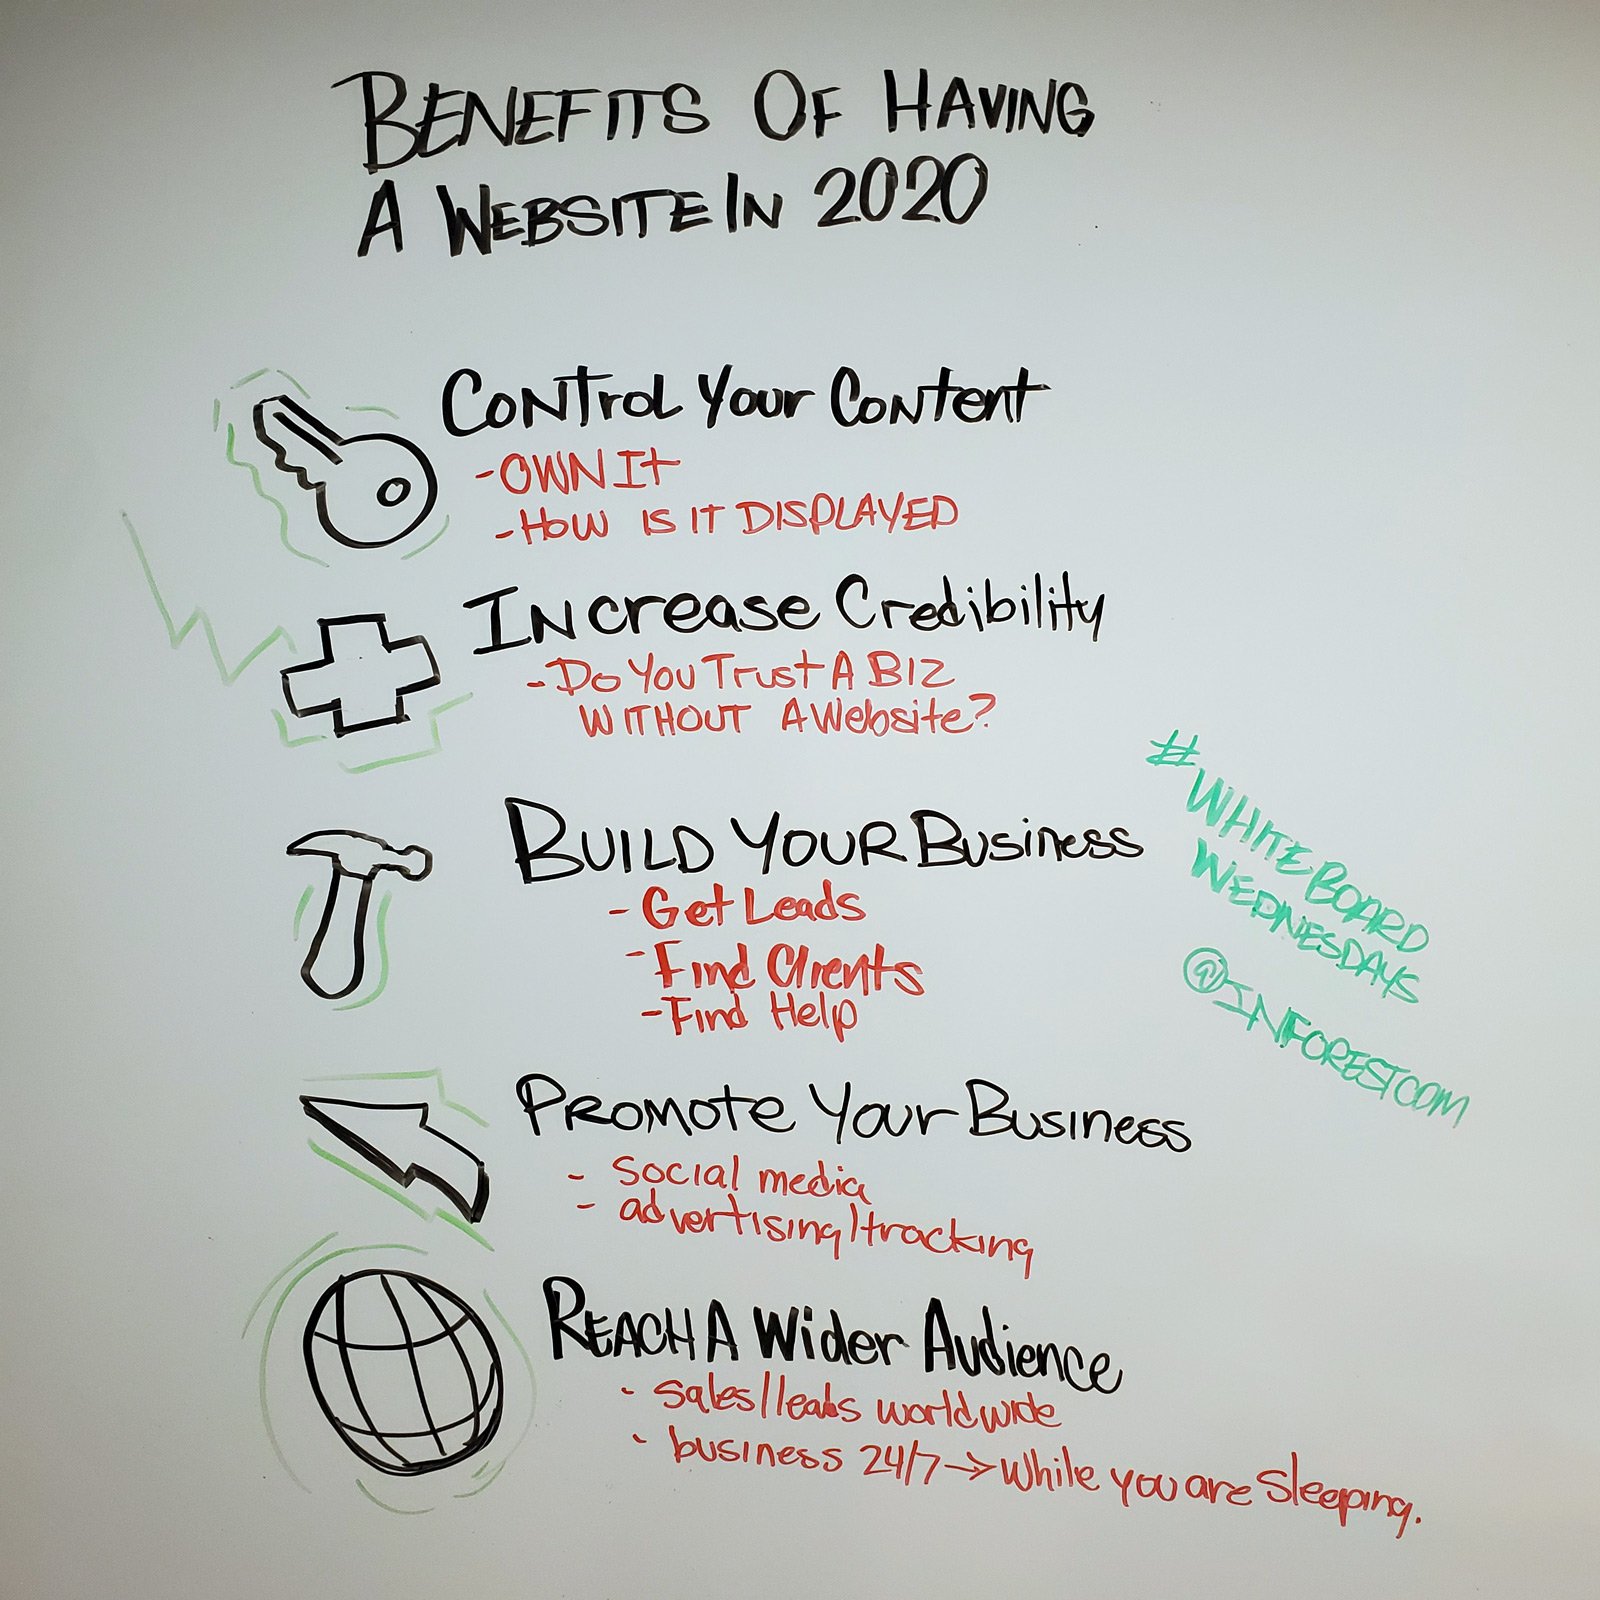 BENEFITS OF HAVING
A WEBSITE IN 2020
Control Your Content
- OWN It
- How IS IT DISPLAYED
INcrease Credibility
- Do You Trust A BIZ
WITHOUT A Website?
BUILD YOUR Business
- Get Leads
- Find Clients
- Find Help
PROMOTE Your Business
- Social media
- advertising/tracking
REACH A Wider Audience
- sales/leads worldwide
- business 24/7 → While you are Sleeping.
#WHITEBOARD
WEDNESDAYS
@INFORESTCOM